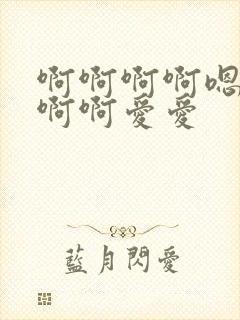 啊啊啊啊嗯
啊啊爱爱
藍月閃愛